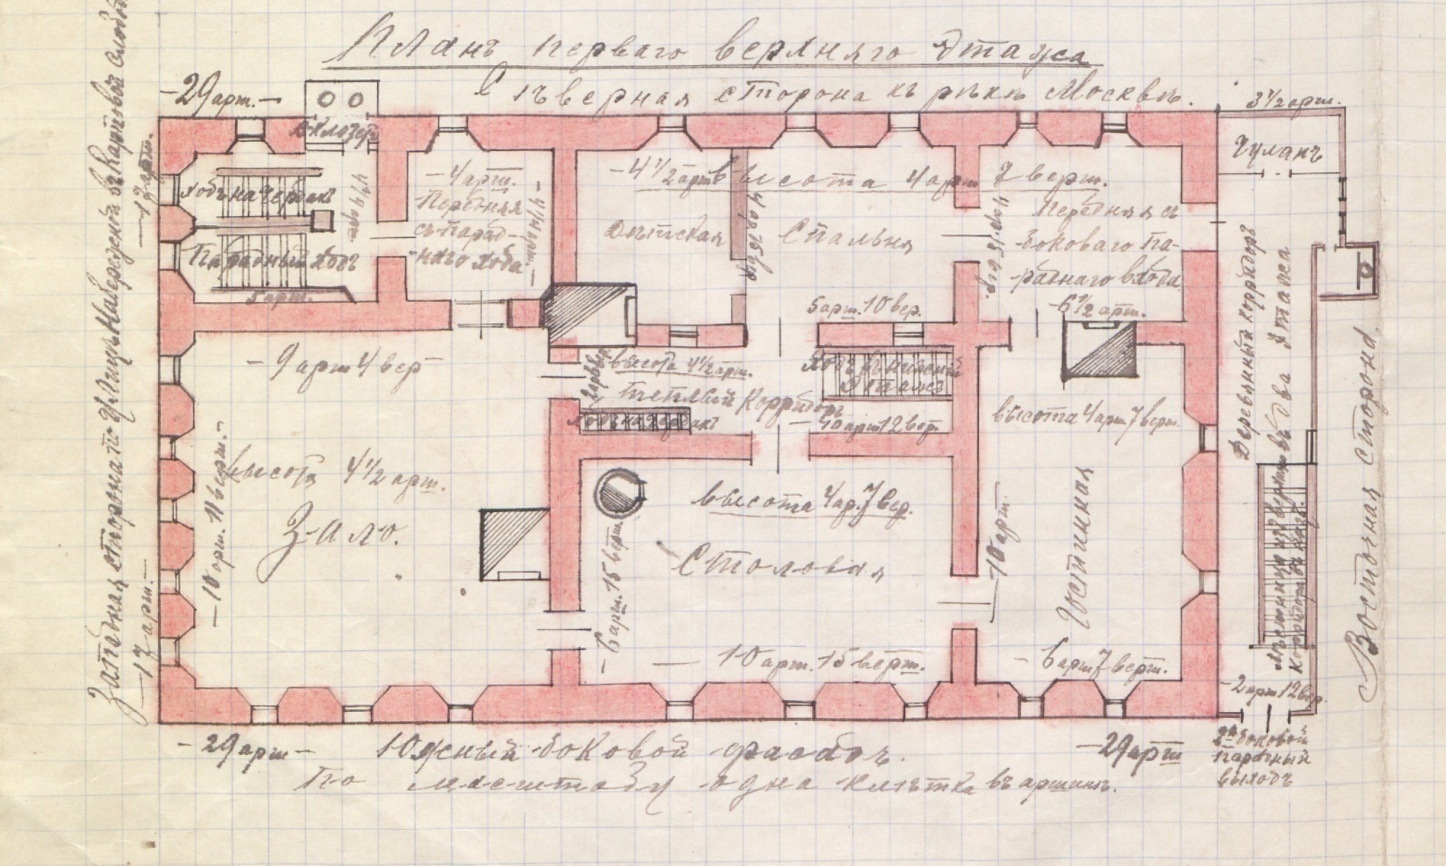 Планъ перваго верхняго этажа
Сѣверная сторона къ рѣкѣ Москвѣ.
-29 арш.-
3½ арш.
Клозетъ
Чуланъ
17 арш.
Ходъ на чердакъ
Парадный ходъ
5 арш.
-4 арш.-
Передняя
съ парад-
наго хода
-4½ арш
Дѣтская
высота 4 арш 7 верш.
Спальня
5 арш. 10 вер.
Передняя съ
боковаго па-
раднаго входа
-6½ арш.
Деревянный корридоръ
въ два этажа
Восточная сторона.
Западная сторона по улицы
-17 арш.-
-9 арш 4 вер
высота 4½ арш.
Зало.
-10 арш. 11 верш.-
высота 4½ арш.
теплый корридоръ
Ходъ на чердакъ
Ходъ въ нижній
этажъ
-10 арш 12 вер.
высота 4 ар. 7 вер.
Столовая
-6 арш. 15 верш.
-10 арш. 15 верш.
высота 4 арш 7 верш.
Гостинная
-10 арш.
-6 арш 7 верш.
-2 арш 12 вер.
2й боковой
парадный
выходъ
-29 арш-
Южный боковой фасадъ.
-29 арш
По масштабу одна клѣтка въ аршинъ.